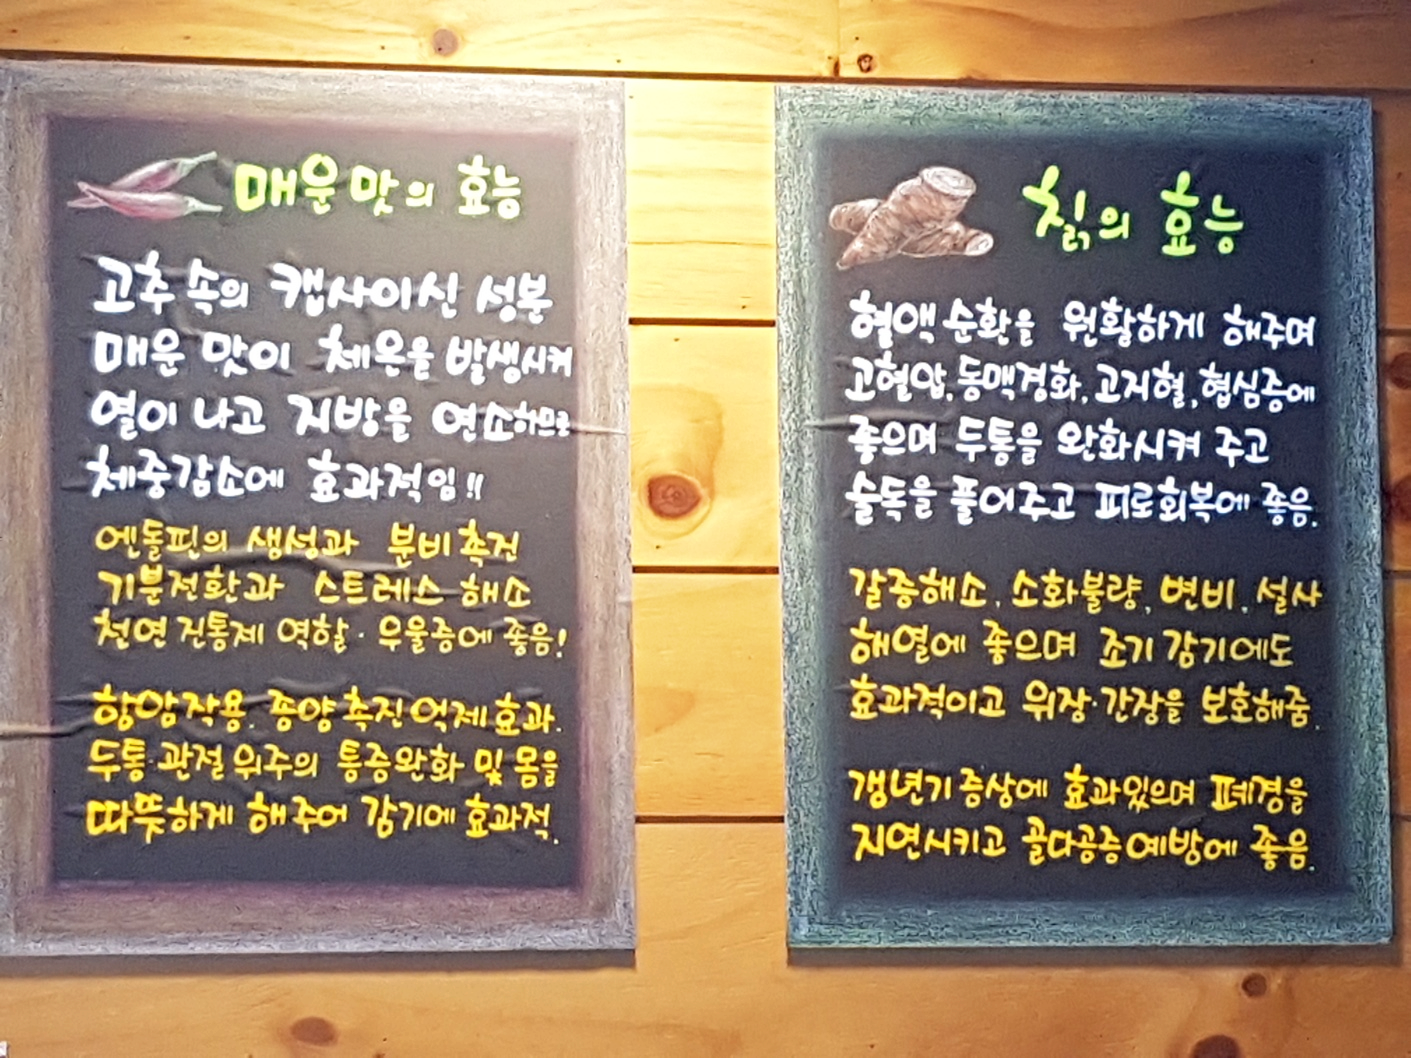 매운 맛의 효능
고추 속의 캡사이신 성분
매운 맛이 체온을 발생시켜
열이 나고 지방을 연소하므로
체중감소에 효과적임!!
엔돌핀의 생성과 분비촉진
기분전환과 스트레스 해소
천연 진통제 역할·우울증에 좋음!
항암작용. 종양 촉진 억제 효과.
두통·관절 위주의 통증완화 및 몸을
따뜻하게 해주어 감기에 효과적.
칡의 효능
혈액 순환을 원활하게 해주며
고혈압, 동맥경화, 고지혈, 협심증에
좋으며 두통을 완화시켜 주고
술독을 풀어주고 피로회복에 좋음.
갈증해소, 소화불량, 변비, 설사
해열에 좋으며 조기 감기에도
효과적이고 위장·간장을 보호해줌.
갱년기 증상에 효과있으며 폐경을
지연시키고 골다공증 예방에 좋음.